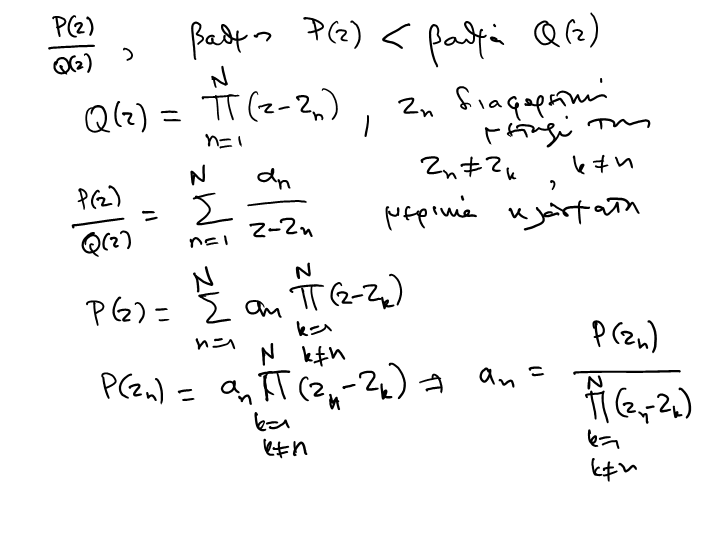 P(z)/Q(z) , βαθμος P(z) < βαθμό Q(z)
Q(z) = ∏_{n=1}^{N} (z-z_n) , z_n διαφορετικοί
μεταξύ τους
z_n ≠ z_k , k ≠ n
P(z)/Q(z) = ∑_{n=1}^{N} a_n/(z-z_n) μερικά κλάσματα
P(z) = ∑_{n=1}^{N} a_n ∏_{k=1, k≠n}^{N} (z-z_k)
P(z_n) = a_n ∏_{k=1, k≠n}^{N} (z_n-z_k) ⇒ a_n = P(z_n)/∏_{k=1, k≠n}^{N} (z_n-z_k)